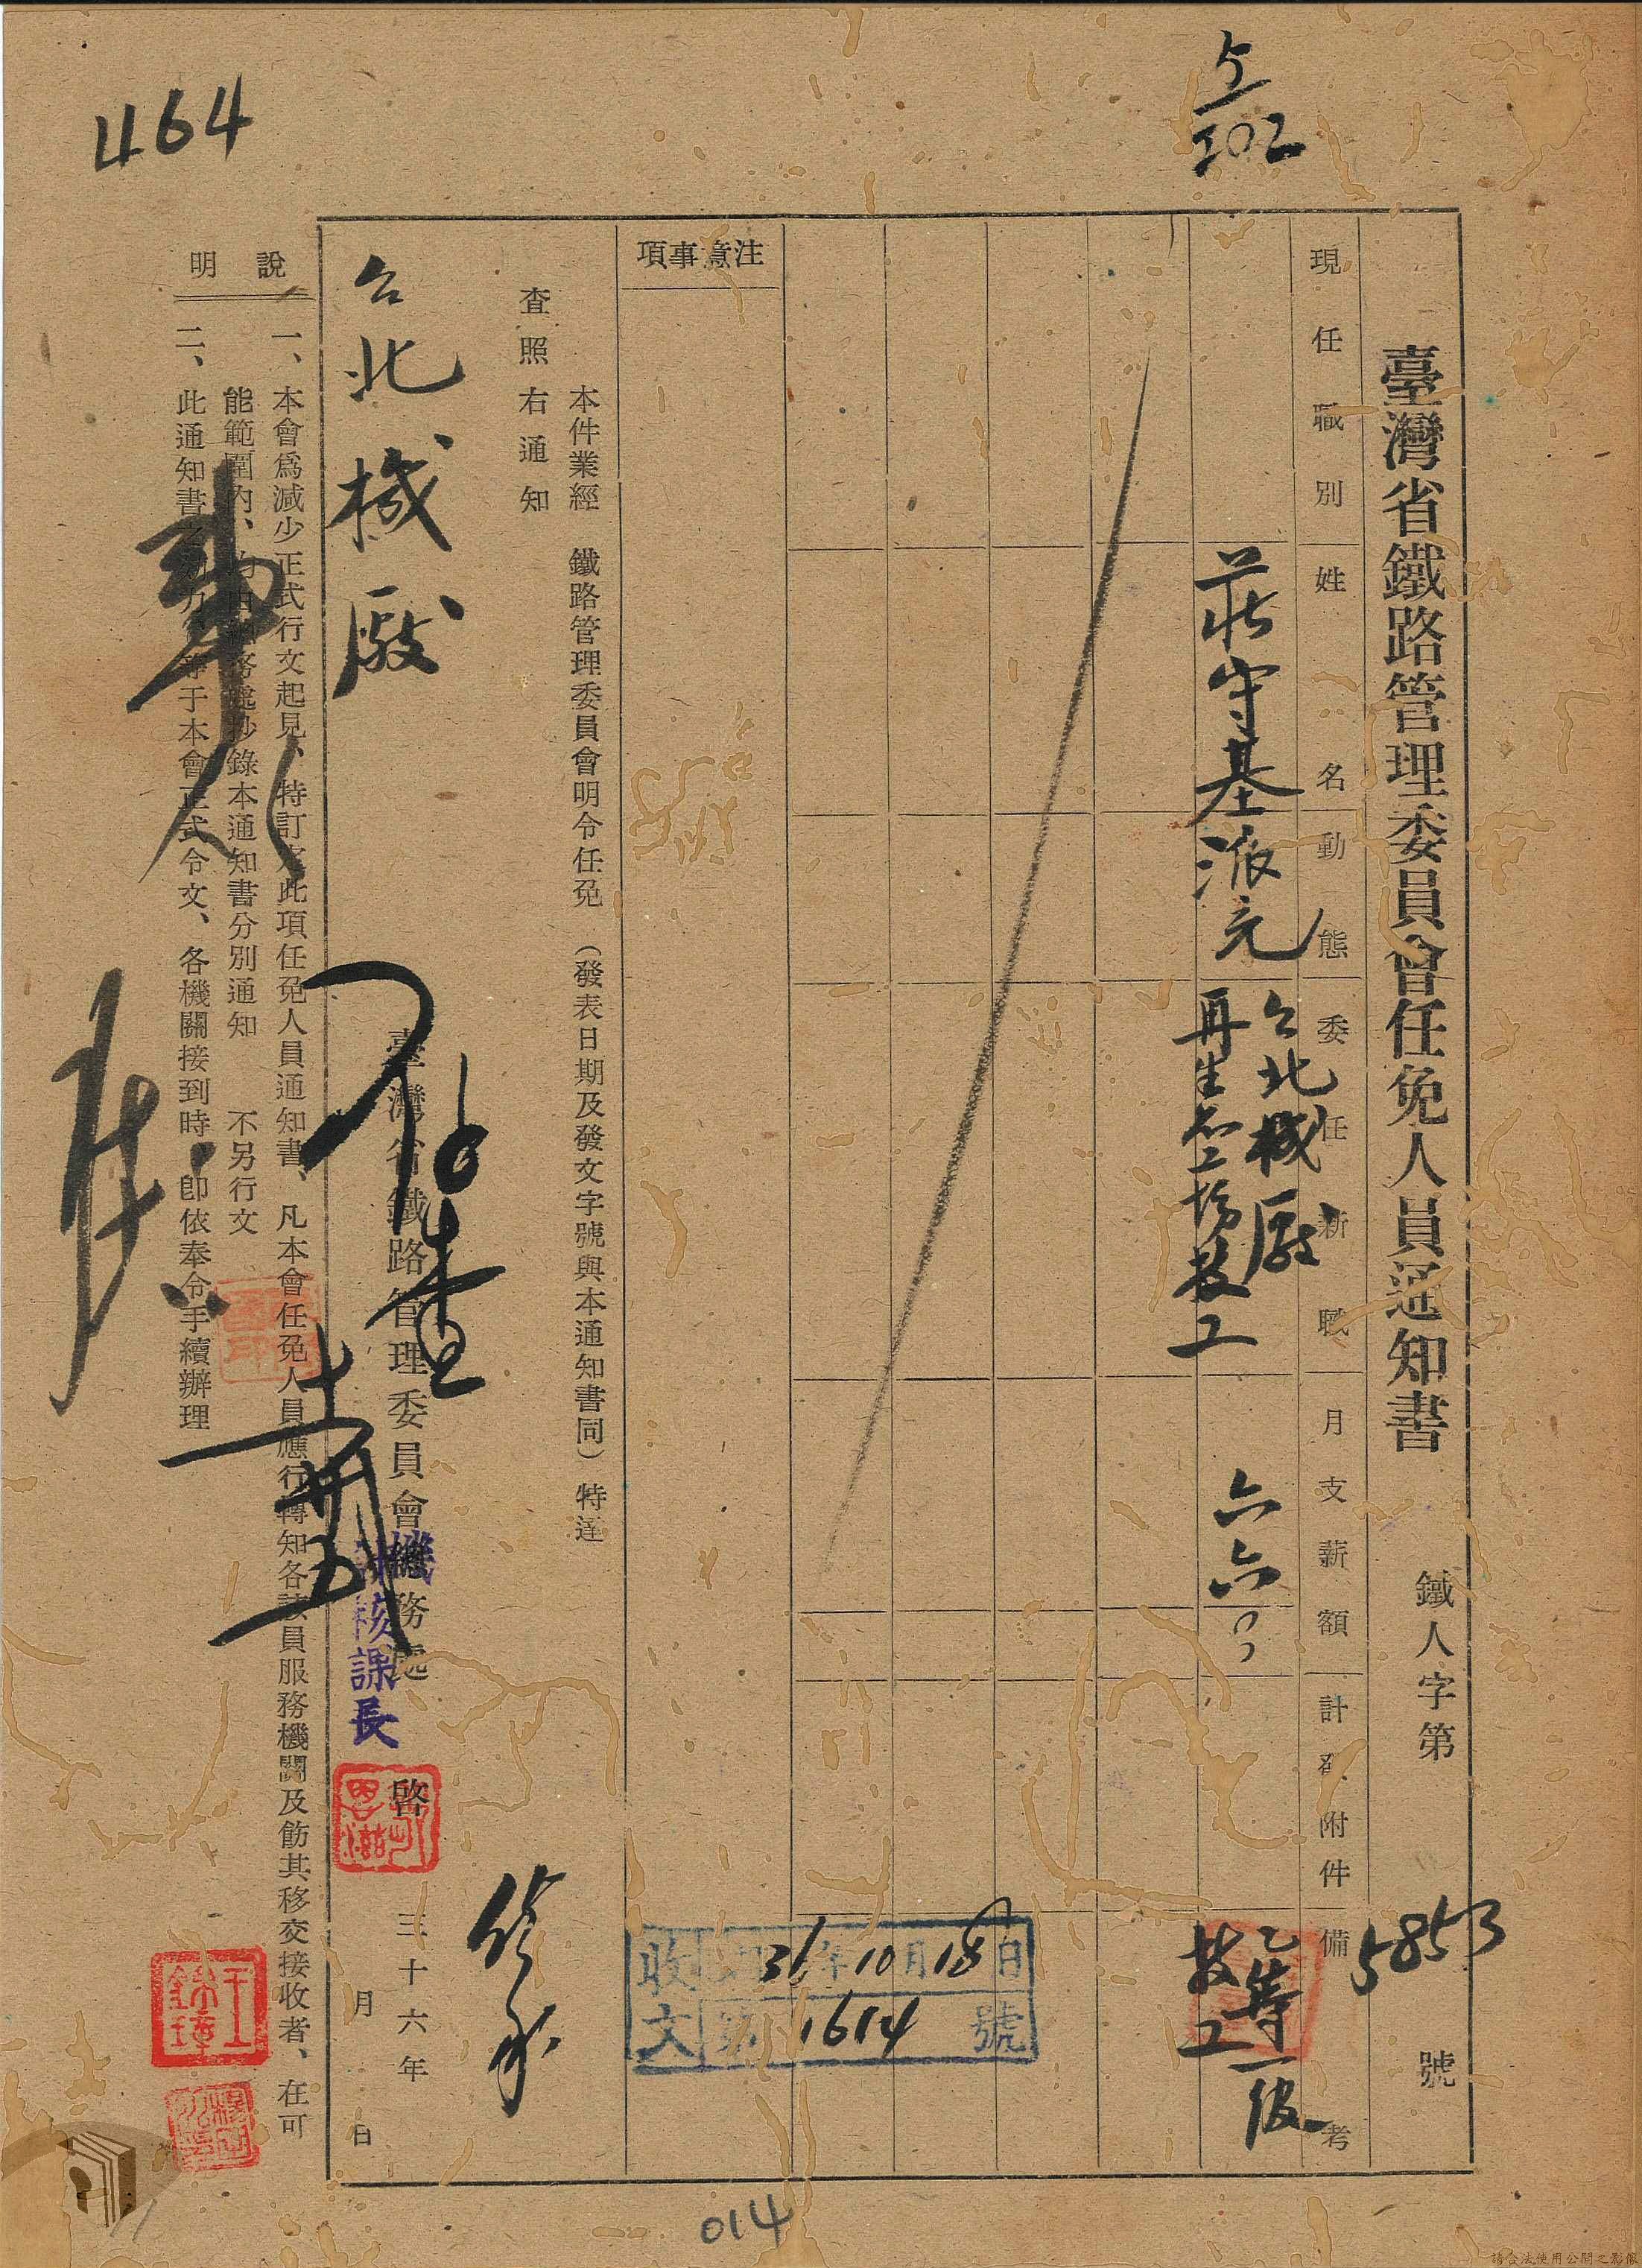 464
5/202
臺灣省鐵路管理委員會任免人員通知書
鐵人字第5853號
現任職別
姓名
動態
委任新職
月支薪額
計算附件
備考
莊守基
派充
台北機廠
再生品工場技工
六六〇
乙等一級
技工
注意事項
收文 36年10月18日
第1614號
本件業經 鐵路管理委員會明令任免 （發表日期及發文字號與本通知書同）特達
查照右通知
台北機廠
臺灣省鐵路管理委員會總務處 啓 三十六年
月 日
課長
說明
一、本會爲減少正式行文起見、特訂定此項任免人員通知書、凡本會任免人員應行轉知各該員服務機關及飭其移交接收者、在可
能範圍內、均由總務處抄錄本通知書分別通知 不另行文
二、此通知書之効力等于本會正式令文、各機關接到時、卽依奉令手續辦理
014
請合法使用公開之影像